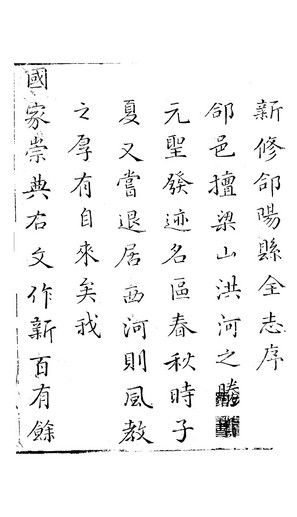 新修郃陽縣全志序
郃邑擅梁山洪河之勝
元聖發迹名區春秋時子
夏又嘗退居西河則風教
之厚有自來矣我
國家崇典右文作新百有餘